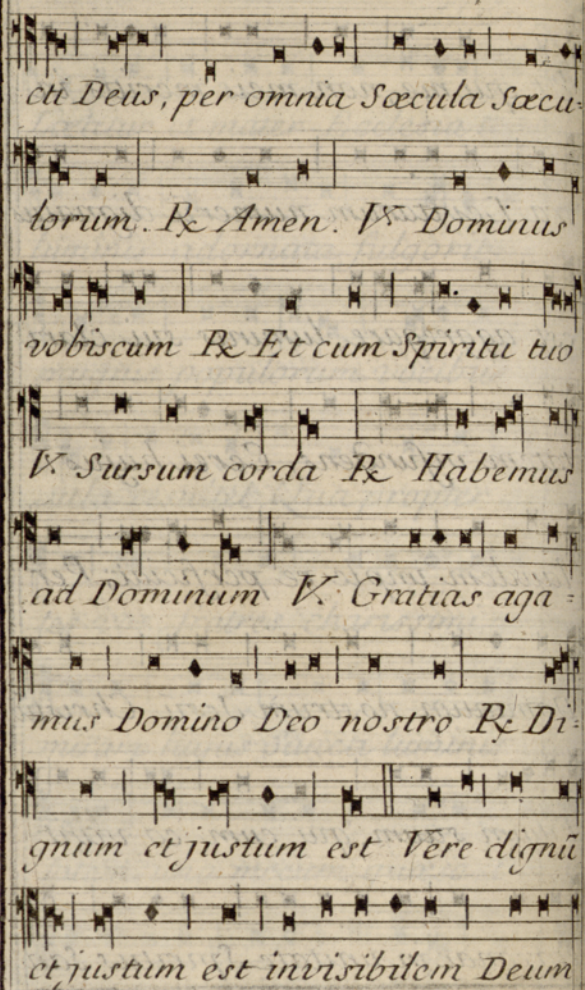 cti Deus, per omnia Sæcula Sæcu=
lorum. ℟ Amen. ℣ Dominus
vobiscum ℟ Et cum Spiritu tuo
℣. Sursum corda ℟ Habemus
ad Dominum ℣. Gratias aga=
mus Domino Deo nostro ℟ Di=
gnum et justum est Vere dignū
et justum est invisibilem Deum